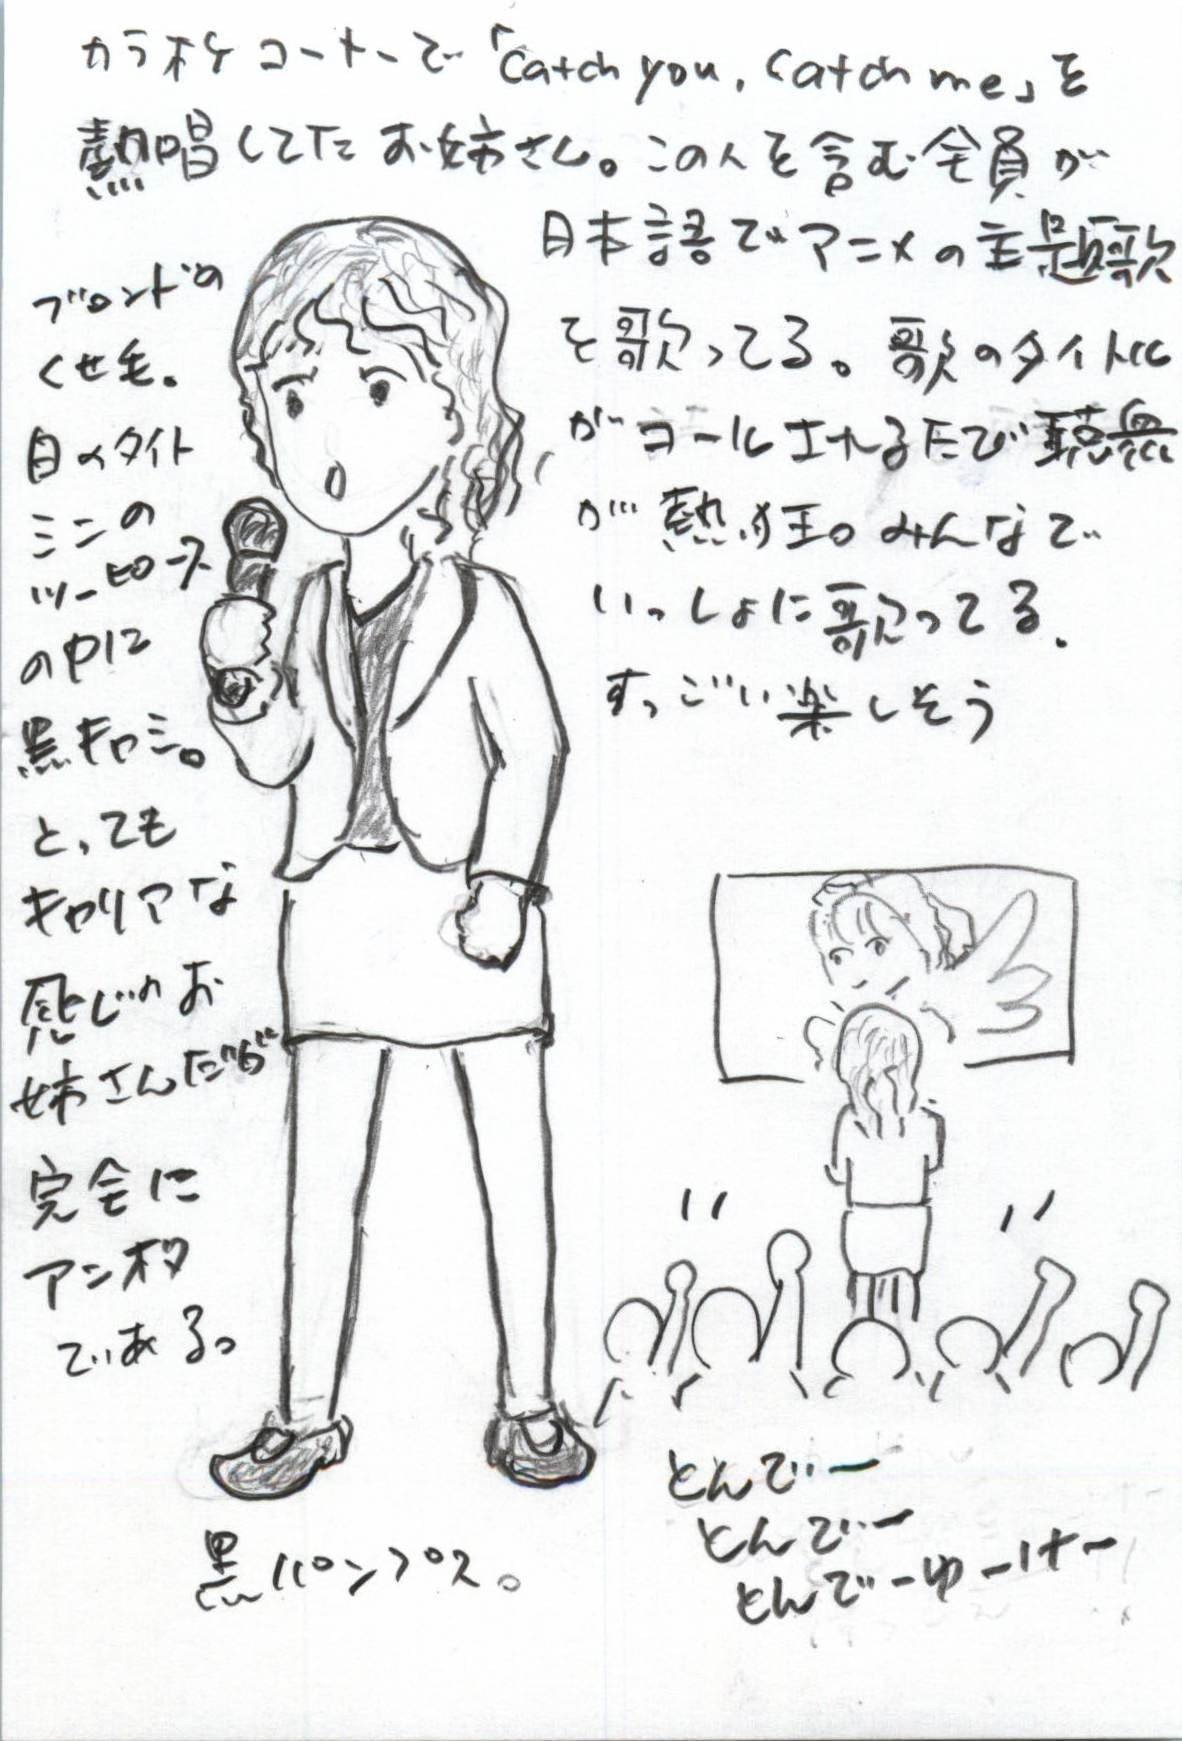 カラオケコーナーで「Catch you, Catch me」を
熱唱してたお姉さん。この人を含む全員が
日本語でアニメの主題歌
を歌ってる。歌のタイトル
がコールされるたび聴衆
が熱狂。みんなで
いっしょに歌ってる。
すっごい楽しそう
ブロンドの
くせ毛。
白のタイト
ミニの
ツーピース
の中に
黒キャミ。
とっても
キャリアな
感じのお
姉さんだが
完全に
アニオタ
である。
黒パンプス。
とんでぃー
とんでぃー
とんでぃーゆーけー